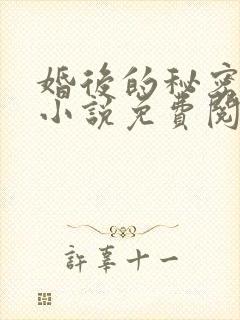 婚後的秘密
小說免費閱
許辜十一